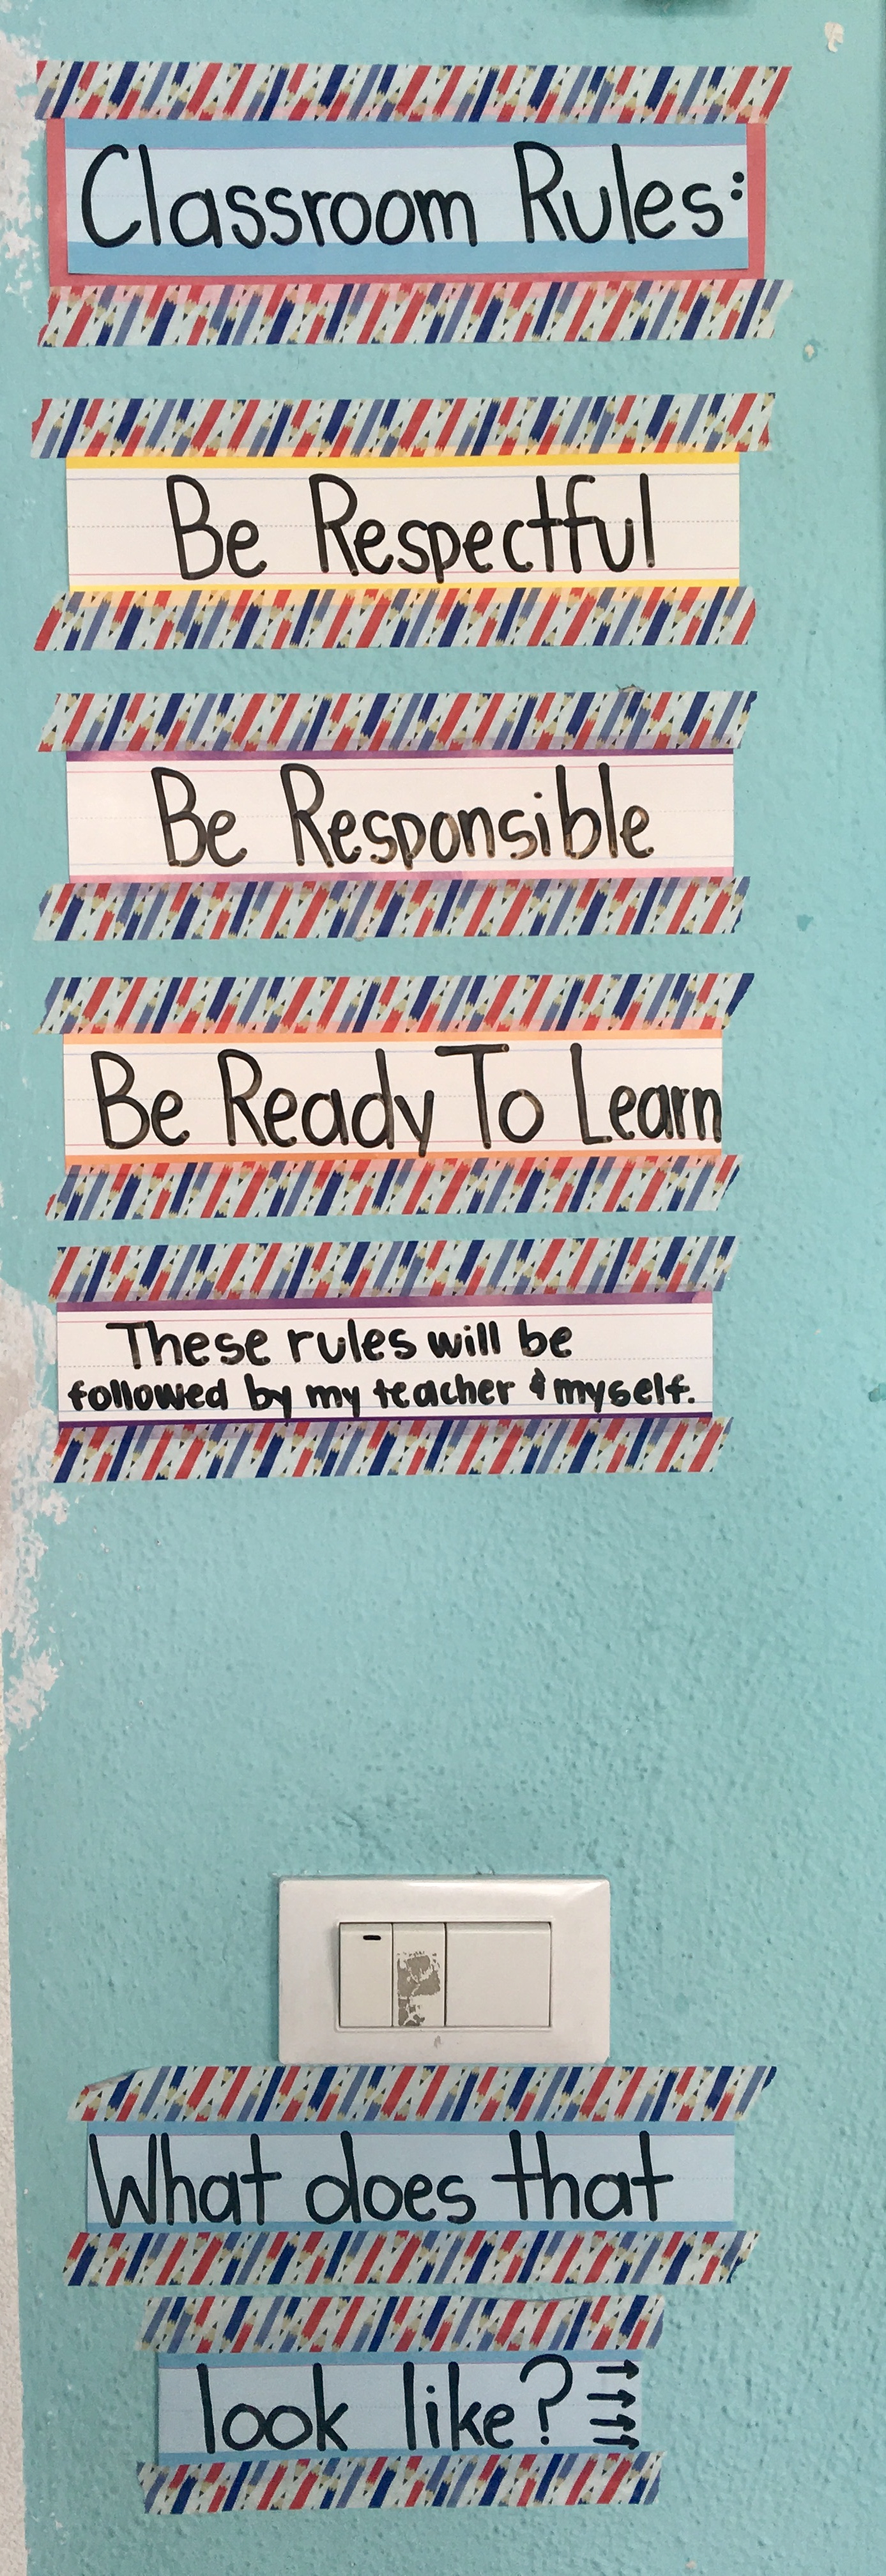 Classroom Rules:
Be Respectful
Be Responsible
Be Ready To Learn
These rules will be
followed by my teacher & myself.
What does that
look like? →
→
→
→